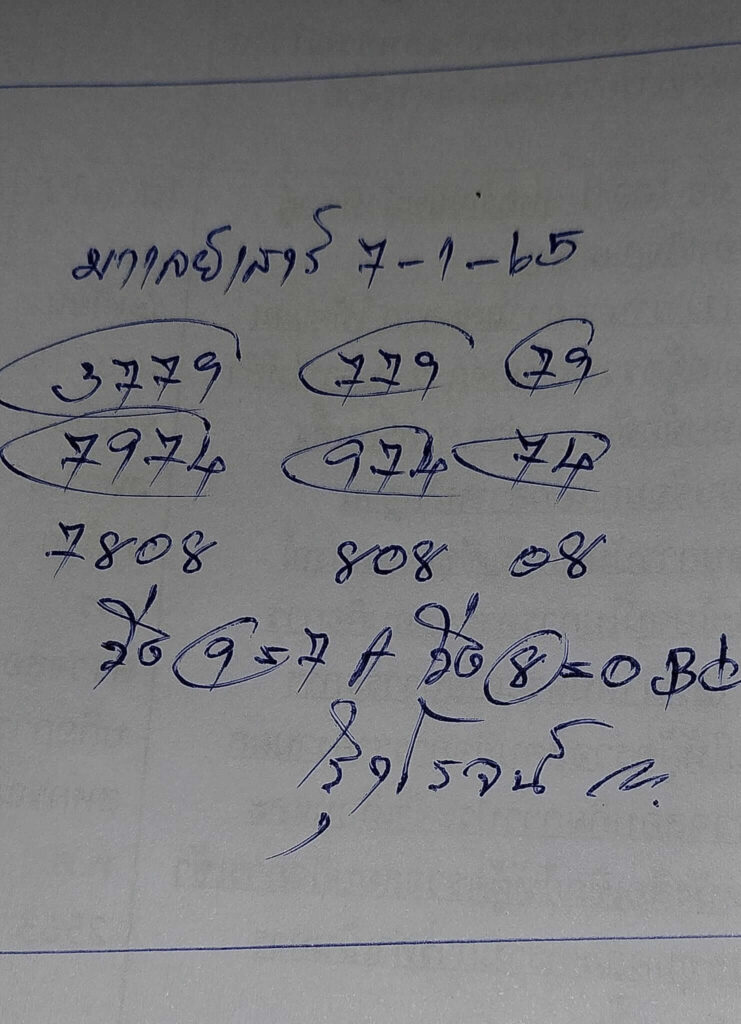 มาเลย์เสาร์ 7-1-65
3779 779 79
7974 974 74
7808 808 08
วิ่ง 9=7 A วิ่ง 8=0 B
รุ่งโรจน์ ท.